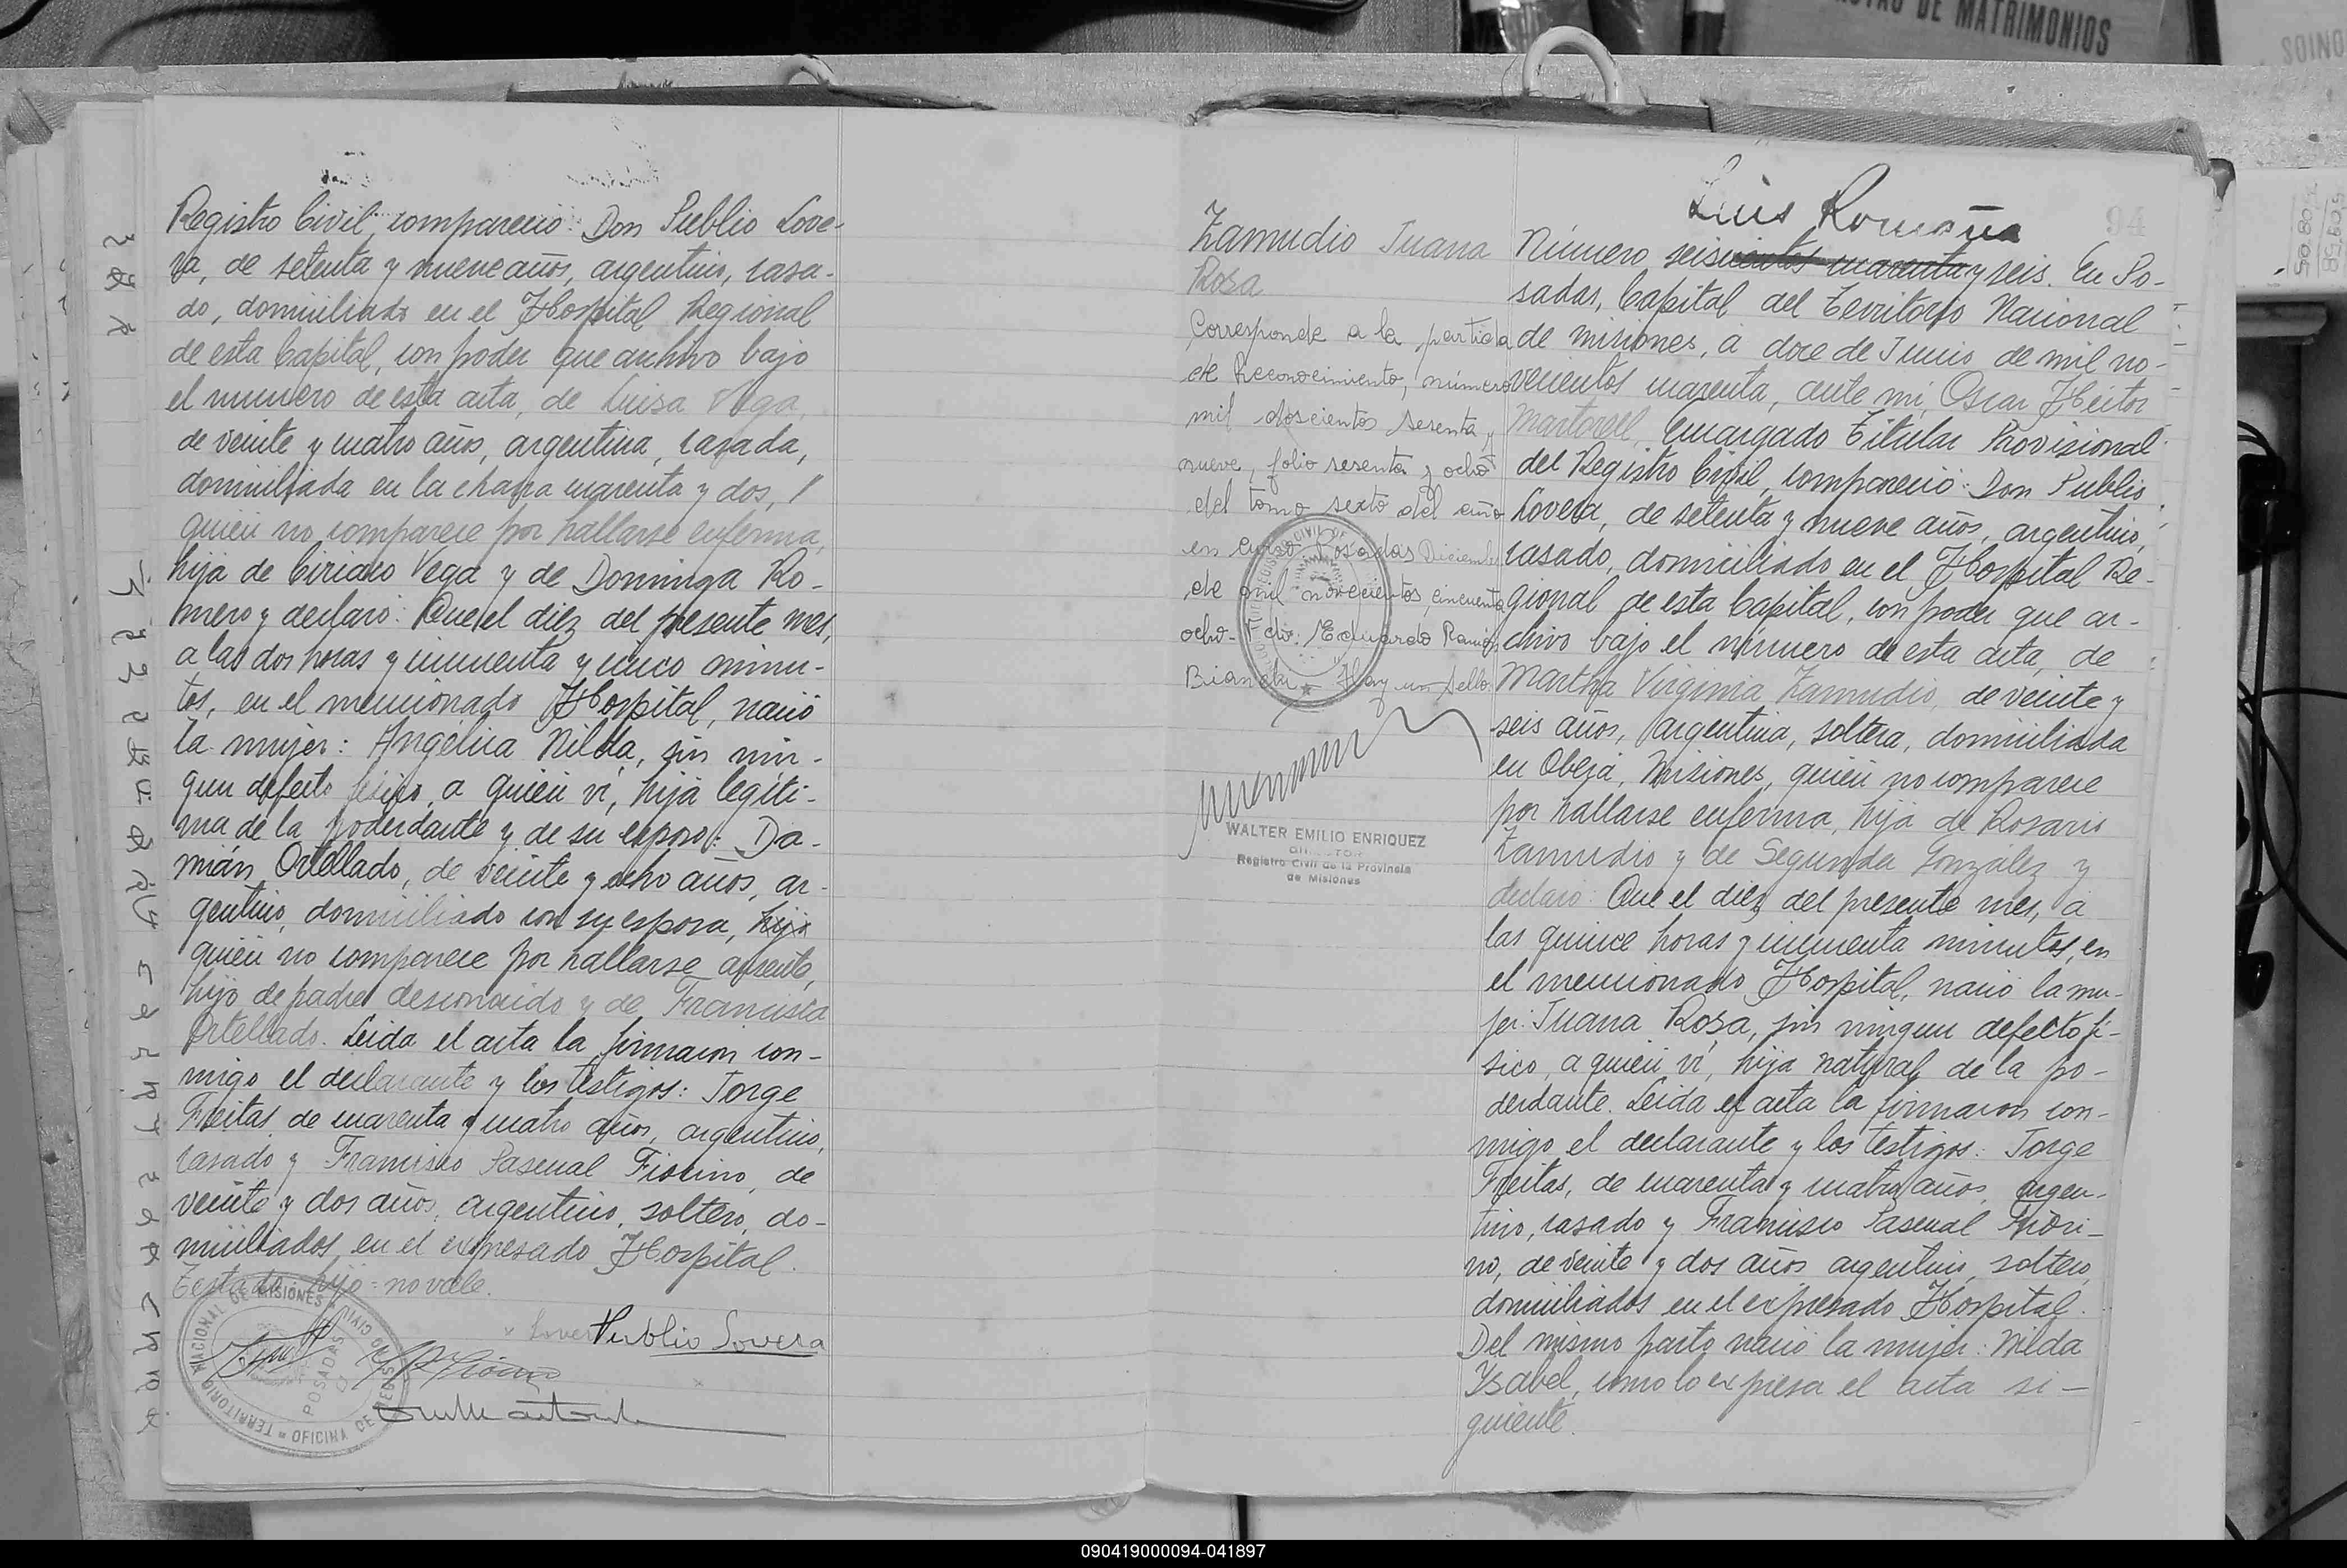 DE MATRIMONIOS
Registro Civil, compareció: Don Publio Love-
ra, de setenta y nueve años, argentino, casa-
do, domiciliado en el Hospital Regional
de esta Capital, con poder que archivo bajo
el numero de esta acta, de Luisa Vega,
de veinte y cuatro años, argentina, casada,
domiciliada en la chacra cuarenta y dos,
quien no comparece por hallarse enferma,
hija de Ciriaco Vega y de Dominga Ro-
mero y declaró: Que el diez del presente mes,
a las dos horas y cincuenta y cinco minu-
tos, en el mencionado Hospital, nació
la mujer: Angélica Nilda, sin nin-
gun defecto físico, a quien ví, hija legíti-
ma de la poderdante y de su esposo: Da-
mián Ortellado, de veinte y ocho años, ar-
gentino, domiciliado con su esposa, hijo
quien no comparece por hallarse ausente,
hijo de padre desconocido y de Francisca
Ortellado. Leida el acta la firmaron con-
migo el declarante y los testigos: Jorge
Freitas de cuarenta y cuatro años, argentino,
casado y Francisco Pascual Fiorino, de
veinte y dos años, argentino, soltero, do-
miciliados en el expresado Hospital.
Testado: hijo = no vale.
Publio Lovera
TERRITORIO NACIONAL DE MISIONES
OFICINA DE REGISTRO CIVIL
POSADAS
Luis Romaña
94
Zamudio Juana
Rosa
Corresponde a la partida
de Reconocimiento, número
mil doscientos sesenta y
nueve, folio sesenta y ocho
del tomo sexto del año
en curso. Posadas Diciembre
de mil novecientos cincuenta
ocho - Fdo: Eduardo Ramón
Bianchi - Hay un sello
WALTER EMILIO ENRIQUEZ
DIRECTOR
Registro Civil de la Provincia
de Misiones
Número seiscientos cuarenta y seis. En Po-
sadas, Capital del Territorio Nacional
de misiones, á doce de Junio de mil no-
vecientos cuarenta, ante mí, Oscar Héctor
Martorell, Encargado Titular Provisional
del Registro Civil, compareció: Don Publio
Lovera, de setenta y nueve años, argentino,
casado, domiciliado en el Hospital Re-
gional de esta Capital, con poder que ar-
chivo bajo el número de esta acta, de
Martha Virginia Zamudio, de veinte y
seis años, argentina, soltera, domiciliada
en Oberá, Misiones, quien no comparece
por hallarse enferma, hija de Rosario
Zamudio y de Segunda González y
declaró: Que el diez del presente mes, á
las quince horas y cincuenta minutos, en
el mencionado Hospital, nació la mu-
jer: Juana Rosa, sin ningun defecto fí-
sico, a quien ví, hija natural de la po-
derdante. Leida el acta la firmaron con-
migo el declarante y los testigos: Jorge
Freitas, de cuarenta y cuatro años, argen-
tino, casado y Francisco Pascual Fiori-
no, de veinte y dos años argentino, soltero,
domiciliados en el expresado Hospital.
Del mismo parto nació la mujer: Nilda
Ysabel, como lo expresa el acta si-
guiente.
090419000094-041897